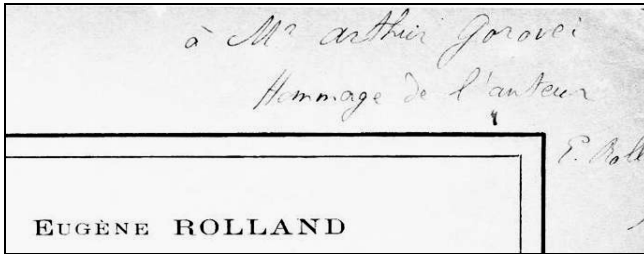 à Mr Arthur Gorovei
Hommage de l'auteur
E. Roll
EUGÈNE ROLLAND